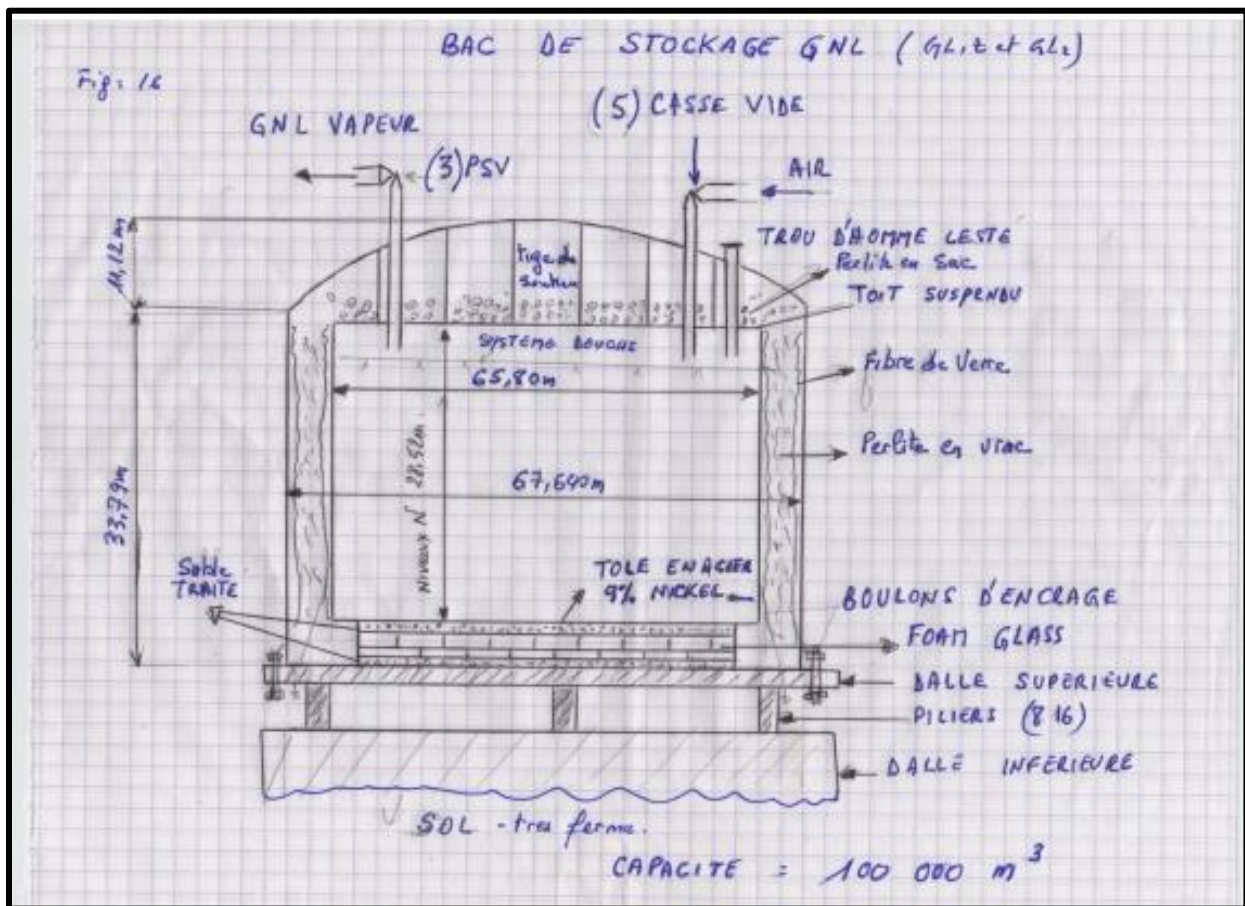 BAC DE STOCKAGE GNL (GL1Z et GL2)
Fig: 16
GNL VAPEUR
(3) PSV
(5) CASSE VIDE
AIR
TROU D'HOMME LESTÉ
Perlite en Sac
TOIT SUSPENDU
Tige de
Soutien
11,12m
SYSTEME DOUCHE
65,80m
Fibre de Verre
Perlite en vrac
NIVEAUX N 28,52m
67,640m
33,79m
Sable
TRAITE
TOLE EN ACIER
9% NICKEL
BOULONS D'ENCRAGE
FOAM GLASS
DALLE SUPERIEURE
PILIERS (816)
DALLE INFERIEURE
SOL - tres ferme.
CAPACITE = 100 000 m³